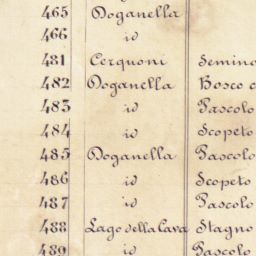 465 Doganella
466 id
481 Cerquoni Semino
482 Doganella Bosco c
483 id Pascolo
484 id Scopeto
485 Doganella Pascolo
486 id Scopeto
487 id Pascolo
488 Lago della Cava Stagno
489 id Pascolo